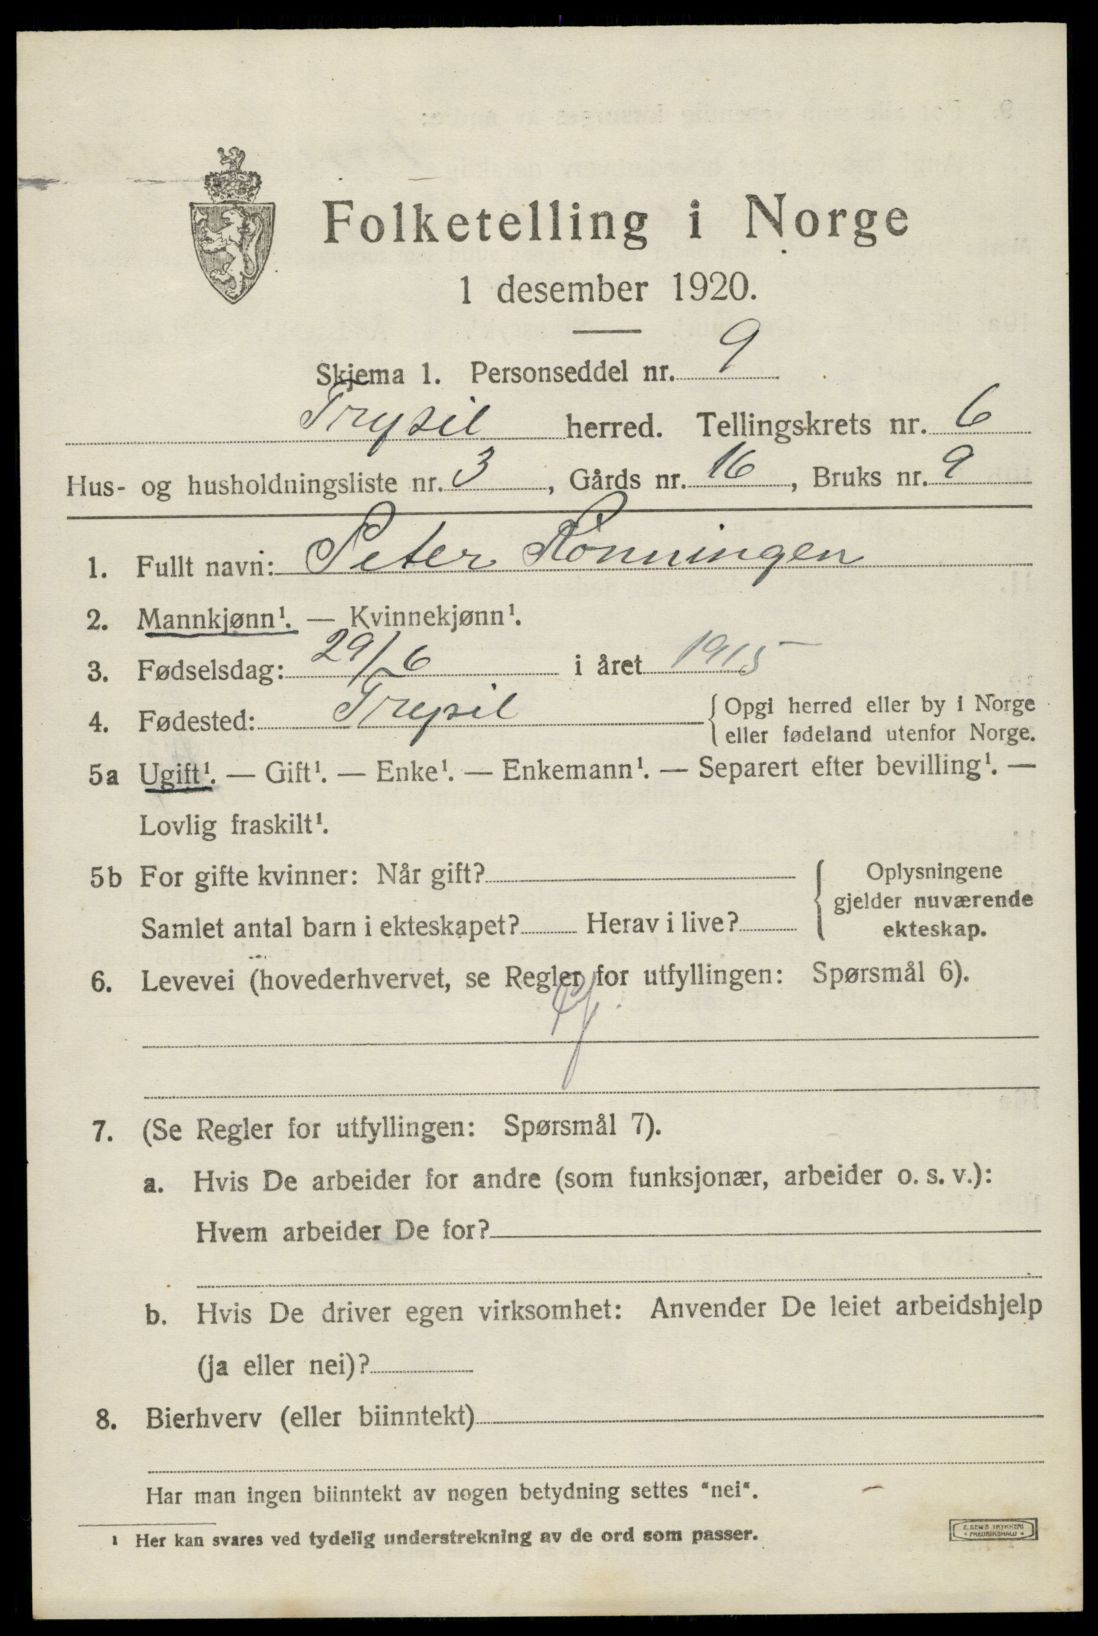 Folketelling i Norge
1 desember 1920.
Skjema 1. Personseddel nr. 9
Trysil herred. Tellingskrets nr. 6
Hus- og husholdningsliste nr. 3, Gårds nr. 16, Bruks nr. 9
1. Fullt navn: Peter Rønningen
2. Mannkjønn¹. — Kvinnekjønn¹.
3. Fødselsdag: 29/6 i året 1915
4. Fødested: Trysil {Opgi herred eller by i Norge
eller fødeland utenfor Norge.
5a Ugift¹. — Gift¹. — Enke¹. — Enkemann¹. — Separert efter bevilling¹. —
Lovlig fraskilt¹.
5b For gifte kvinner: Når gift?
Samlet antal barn i ekteskapet? Herav i live?
{Oplysningene
gjelder nuværende
ekteskap.
6. Levevei (hovederhvervet, se Regler for utfyllingen: Spørsmål 6).
7. (Se Regler for utfyllingen: Spørsmål 7).
a. Hvis De arbeider for andre (som funksjonær, arbeider o. s. v.):
Hvem arbeider De for?
b. Hvis De driver egen virksomhet: Anvender De leiet arbeidshjelp
(ja eller nei)?
8. Bierhverv (eller biinntekt)
Har man ingen biinntekt av nogen betydning settes "nei".
¹ Her kan svares ved tydelig understrekning av de ord som passer.